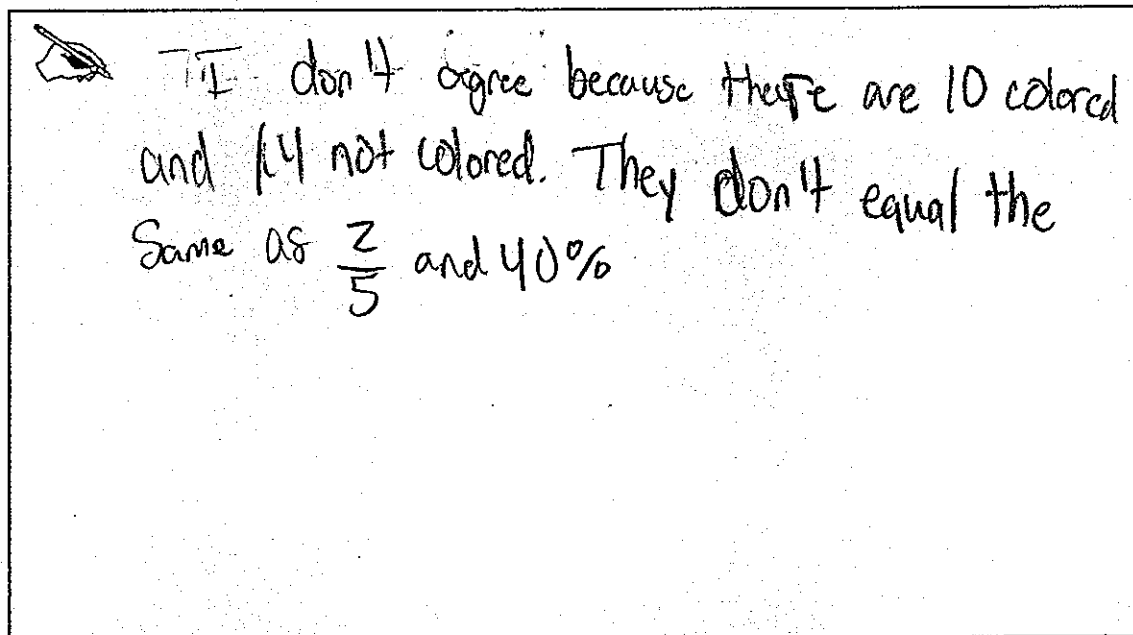 I don't agree because there are 10 colored
and 14 not colored. They don't equal the
Same as 2/5 and 40%